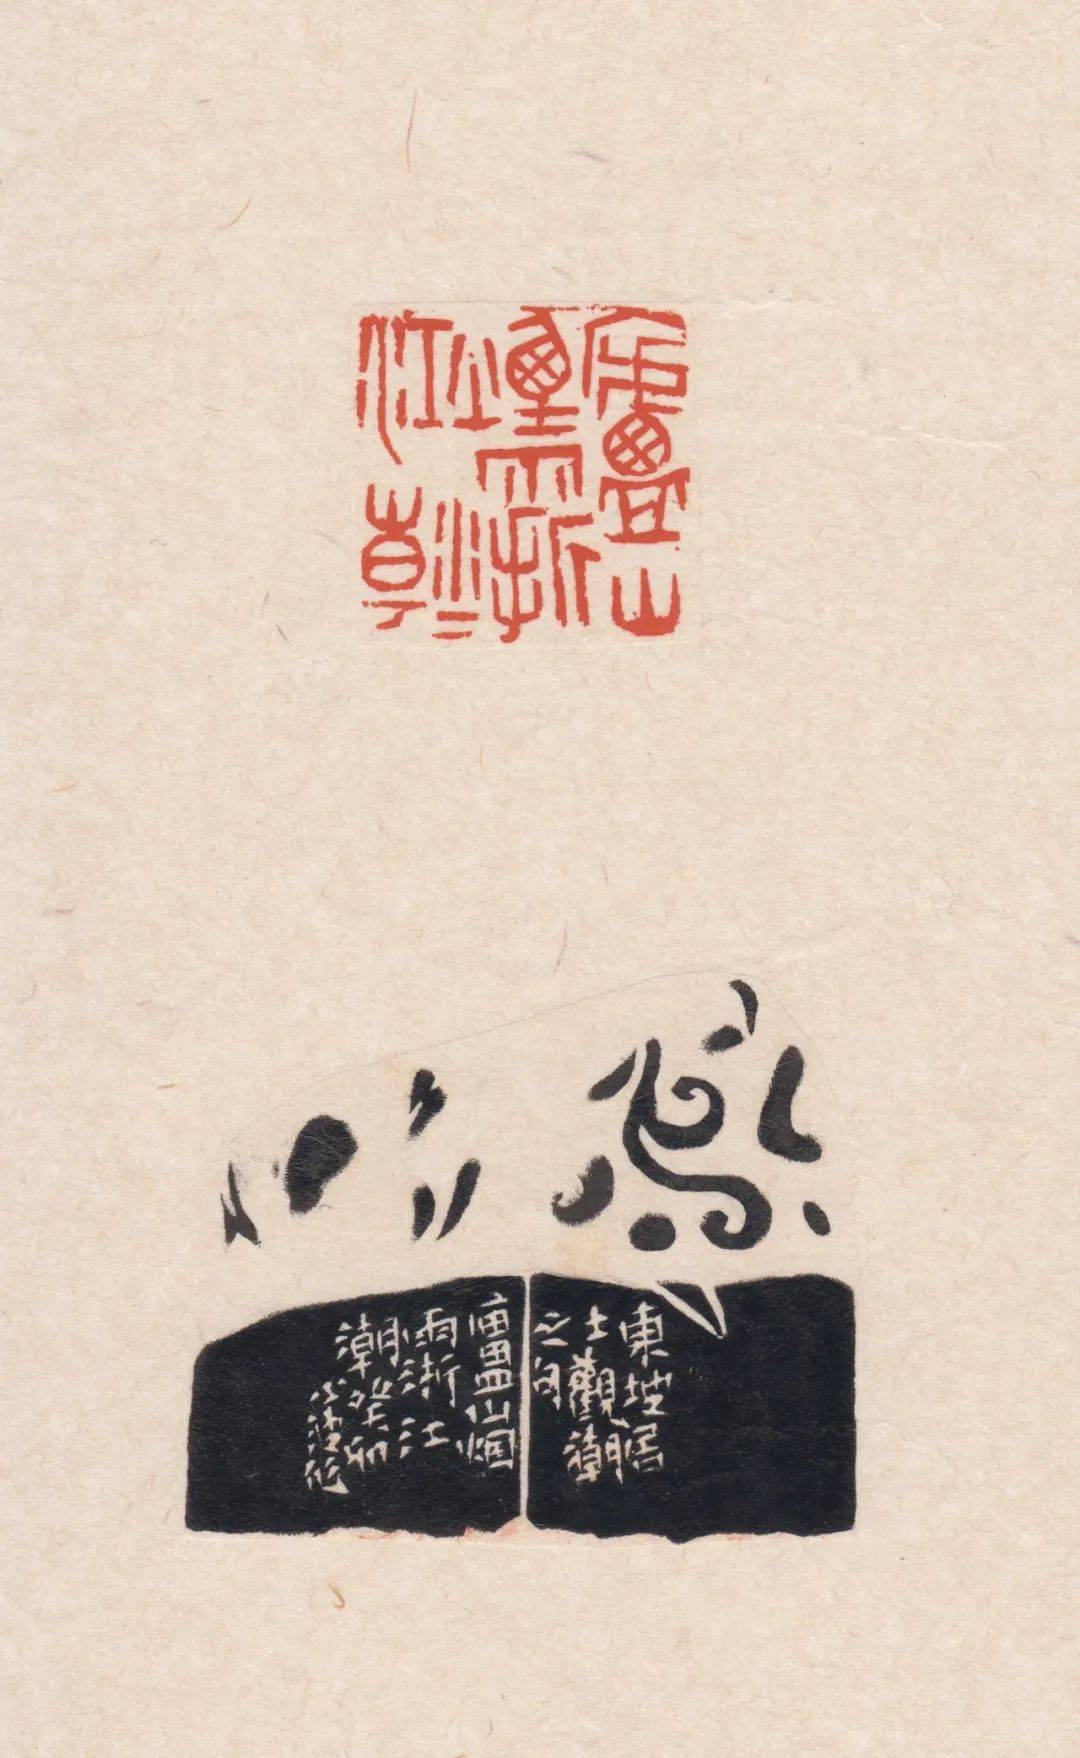 廬山
煙雨浙
江潮
東坡居
士觀潮
之句
廬山烟
雨浙江
潮癸卯